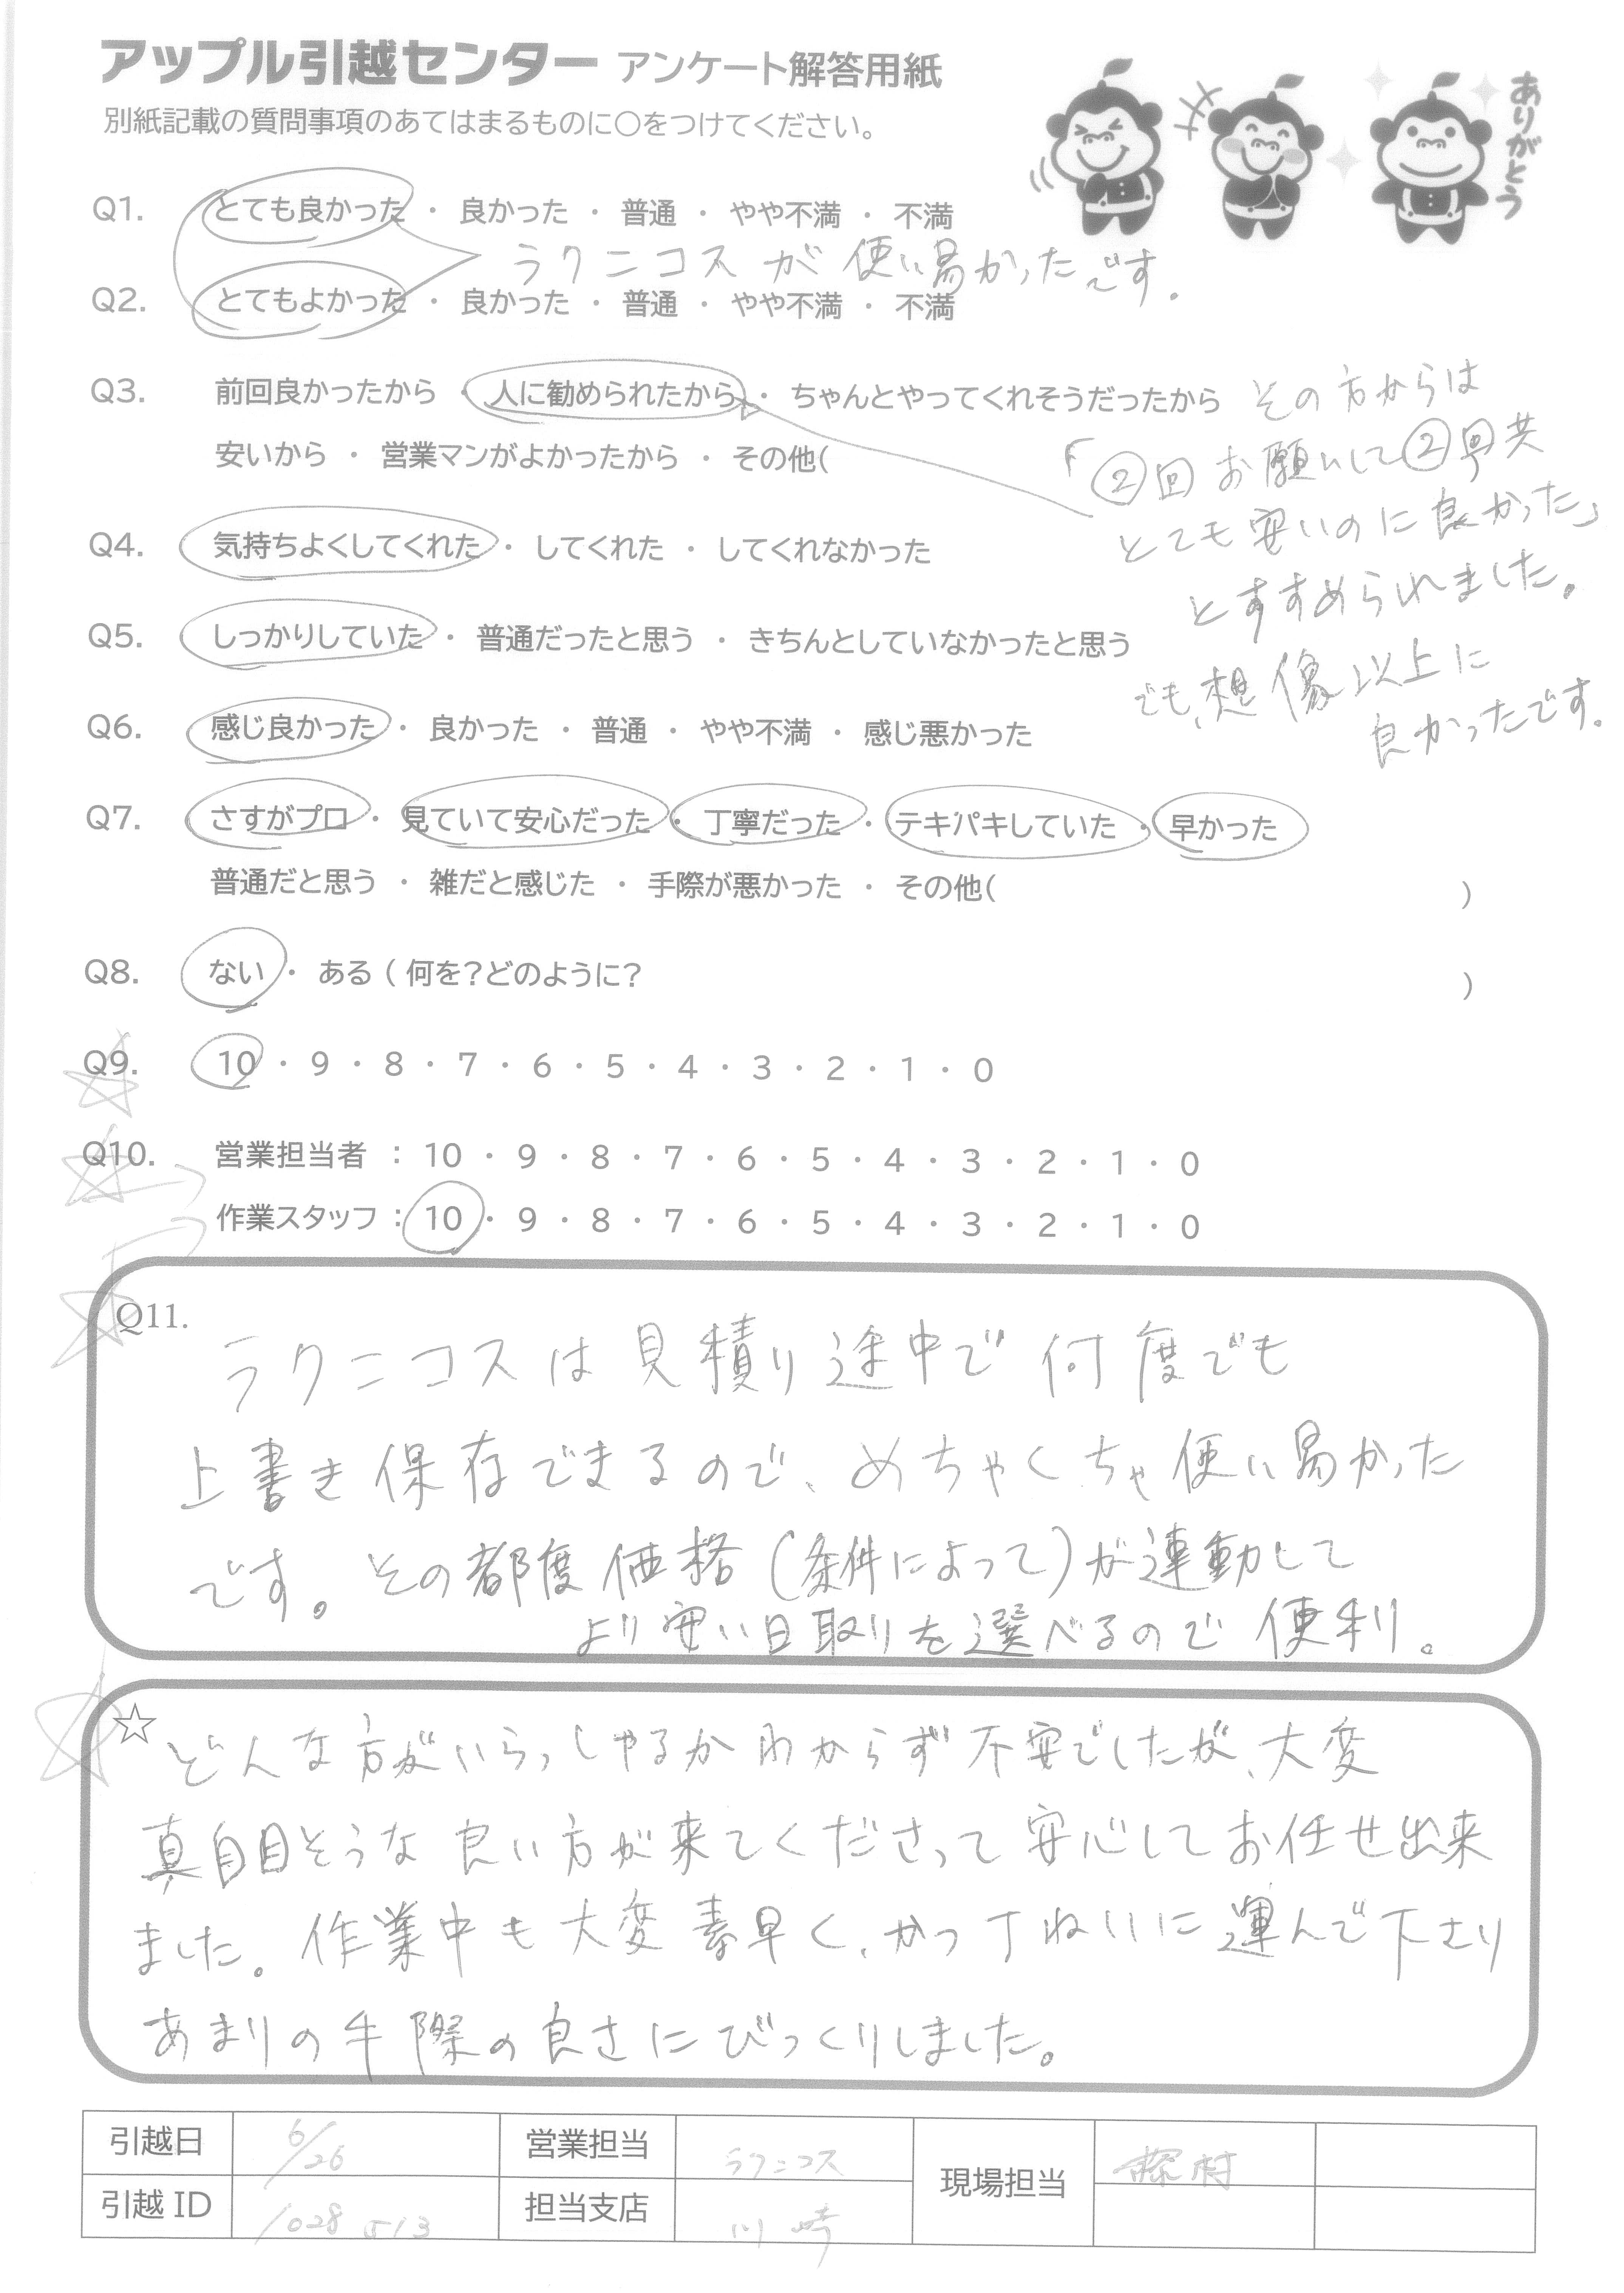 アップル引越センター アンケート解答用紙
別紙記載の質問事項のあてはまるものに○をつけてください。
ありがとう
Q1. とても良かった ・ 良かった ・ 普通 ・ やや不満 ・ 不満
ラクニコスが使い易かったです。
Q2. とてもよかった ・ 良かった ・ 普通 ・ やや不満 ・ 不満
Q3. 前回良かったから ・ 人に勧められたから ・ ちゃんとやってくれそうだったから
安いから ・ 営業マンがよかったから ・ その他(
その方からは
「②回お願いして②回共
とても安いのに良かった」
とすすめられました。
でも、想像以上に
良かったです。
Q4. 気持ちよくしてくれた ・ してくれた ・ してくれなかった
Q5. しっかりしていた ・ 普通だったと思う ・ きちんとしていなかったと思う
Q6. 感じ良かった ・ 良かった ・ 普通 ・ やや不満 ・ 感じ悪かった
Q7. さすがプロ ・ 見ていて安心だった ・ 丁寧だった ・ テキパキしていた ・ 早かった
普通だと思う ・ 雑だと感じた ・ 手際が悪かった ・ その他( )
Q8. ない ・ ある ( 何を?どのように? )
Q9. 10 ・ 9 ・ 8 ・ 7 ・ 6 ・ 5 ・ 4 ・ 3 ・ 2 ・ 1 ・ 0
Q10. 営業担当者 : 10 ・ 9 ・ 8 ・ 7 ・ 6 ・ 5 ・ 4 ・ 3 ・ 2 ・ 1 ・ 0
作業スタッフ : 10 ・ 9 ・ 8 ・ 7 ・ 6 ・ 5 ・ 4 ・ 3 ・ 2 ・ 1 ・ 0
Q11.
ラクニコスは見積り途中で何度でも
上書き保存できるので、めちゃくちゃ使い易かった
です。その都度価格(条件によって)が連動して
より安い日取りを選べるので便利。
☆どんな方がいらっしゃるかわからず不安でしたが、大変
真自目そうな良い方が来てくださって安心してお任せ出来
ました。作業中も大変素早く、かつ丁ねいに運んで下さり
あまりの手際の良さにびっくりしました。
引越日 6/26 営業担当 ラクニコス 現場担当 藤村
引越ID 1028513 担当支店 川崎